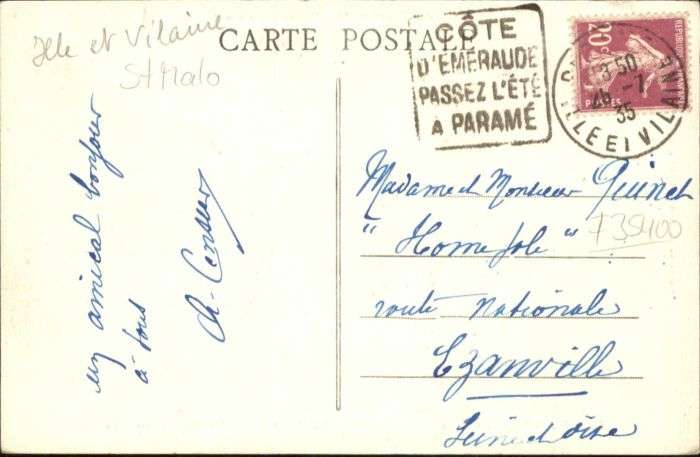 Ille et Vilaine
St Malo
CARTE POSTALE
CÔTE
D'EMERAUDE
PASSEZ L'ÉTÉ
A PARAMÉ
20c
POSTES
13·50
26 -7
35
ILLE ET VILAINE
un amical bonjour
à tous
Madame et Monsieur Guinet
"Home Jole"
735400
route Nationale
Ezanville
Seine et Oise